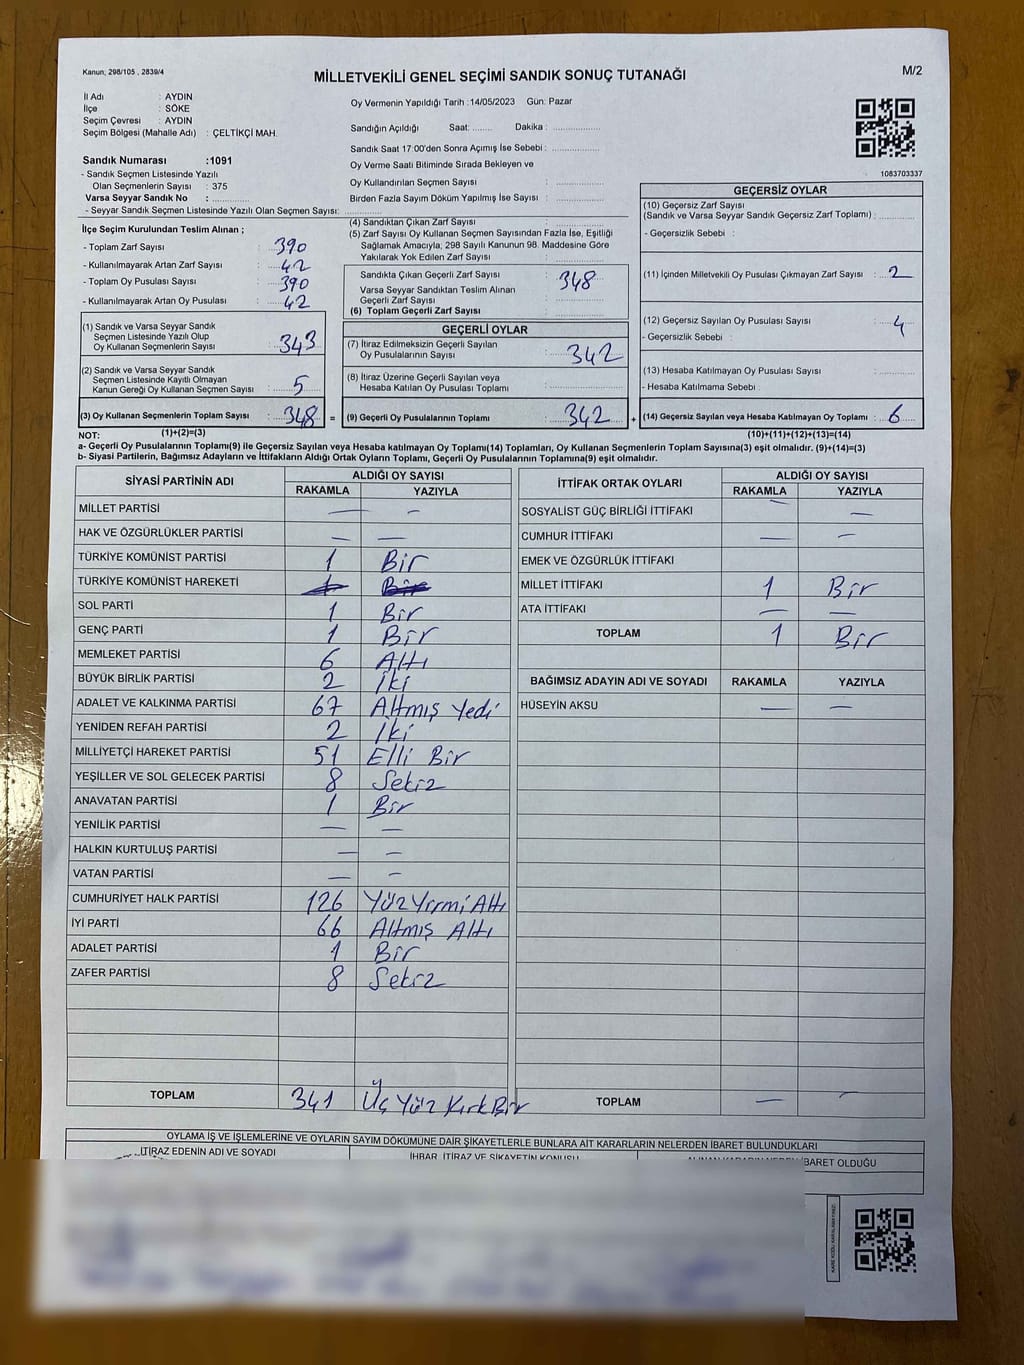 Kanun; 298/105 , 2839/4
MİLLETVEKİLİ GENEL SEÇİMİ SANDIK SONUÇ TUTANAĞI
M/2
İl Adı : AYDIN
İlçe : SÖKE
Seçim Çevresi : AYDIN
Seçim Bölgesi (Mahalle Adı) : ÇELTİKÇİ MAH.
Sandık Numarası :1091
- Sandık Seçmen Listesinde Yazılı
Olan Seçmenlerin Sayısı : 375
Varsa Seyyar Sandık No : ................
- Seyyar Sandık Seçmen Listesinde Yazılı Olan Seçmen Sayısı: ..............
Oy Vermenin Yapıldığı Tarih :14/05/2023 Gün: Pazar
Sandığın Açıldığı Saat: ........ Dakika : ..................
Sandık Saat 17:00'den Sonra Açımış İse Sebebi : ..................
Oy Verme Saati Bitiminde Sırada Bekleyen ve
Oy Kullandırılan Seçmen Sayısı : ..................
Birden Fazla Sayım Döküm Yapılmış İse Sayısı : ..................
1083703337
İlçe Seçim Kurulundan Teslim Alınan ;
- Toplam Zarf Sayısı : 390
- Kullanılmayarak Artan Zarf Sayısı : 42
- Toplam Oy Pusulası Sayısı : 390
- Kullanılmayarak Artan Oy Pusulası : 42
(1) Sandık ve Varsa Seyyar Sandık
Seçmen Listesinde Yazılı Olup
Oy Kullanan Seçmenlerin Sayısı : 343
(2) Sandık ve Varsa Seyyar Sandık
Seçmen Listesinde Kayıtlı Olmayan
Kanun Gereği Oy Kullanan Seçmen Sayısı : 5
(3) Oy Kullanan Seçmenlerin Toplam Sayısı : 348 =
(1)+(2)=(3)
(4) Sandıktan Çıkan Zarf Sayısı :
(5) Zarf Sayısı Oy Kullanan Seçmen Sayısından Fazla İse, Eşitliği
Sağlamak Amacıyla; 298 Sayılı Kanunun 98. Maddesine Göre
Yakılarak Yok Edilen Zarf Sayısı :
Sandıkta Çıkan Geçerli Zarf Sayısı : 348
Varsa Seyyar Sandıktan Teslim Alınan
Geçerli Zarf Sayısı :
(6) Toplam Geçerli Zarf Sayısı :
GEÇERLİ OYLAR
(7) İtiraz Edilmeksizin Geçerli Sayılan
Oy Pusulalarının Sayısı : 342
(8) İtiraz Üzerine Geçerli Sayılan veya
Hesaba Katılan Oy Pusulası Toplamı :
(9) Geçerli Oy Pusulalarının Toplamı : 342 +
GEÇERSİZ OYLAR
(10) Geçersiz Zarf Sayısı
(Sandık ve Varsa Seyyar Sandık Geçersiz Zarf Toplamı) :
- Geçersizlik Sebebi :
(11) İçinden Milletvekili Oy Pusulası Çıkmayan Zarf Sayısı : 2
(12) Geçersiz Sayılan Oy Pusulası Sayısı : 4
- Geçersizlik Sebebi :
(13) Hesaba Katılmayan Oy Pusulası Sayısı :
- Hesaba Katılmama Sebebi :
(14) Geçersiz Sayılan veya Hesaba Katılmayan Oy Toplamı : 6
(10)+(11)+(12)+(13)=(14)
NOT:
a- Geçerli Oy Pusulalarının Toplamı(9) ile Geçersiz Sayılan veya Hesaba katılmayan Oy Toplamı(14) Toplamları, Oy Kullanan Seçmenlerin Toplam Sayısına(3) eşit olmalıdır. (9)+(14)=(3)
b- Siyasi Partilerin, Bağımsız Adayların ve İttifakların Aldığı Ortak Oyların Toplamı, Geçerli Oy Pusulalarının Toplamına(9) eşit olmalıdır.
SİYASİ PARTİNİN ADI ALDIĞI OY SAYISI
RAKAMLA YAZIYLA
MİLLET PARTİSİ — —
HAK VE ÖZGÜRLÜKLER PARTİSİ — —
TÜRKİYE KOMÜNİST PARTİSİ 1 Bir
TÜRKİYE KOMÜNİST HAREKETİ
SOL PARTİ 1 Bir
GENÇ PARTİ 1 Bir
MEMLEKET PARTİSİ 6 Altı
BÜYÜK BİRLİK PARTİSİ 2 İki
ADALET VE KALKINMA PARTİSİ 67 Altmış Yedi
YENİDEN REFAH PARTİSİ 2 İki
MİLLİYETÇİ HAREKET PARTİSİ 51 Elli Bir
YEŞİLLER VE SOL GELECEK PARTİSİ 8 Sekiz
ANAVATAN PARTİSİ 1 Bir
YENİLİK PARTİSİ — —
HALKIN KURTULUŞ PARTİSİ — —
VATAN PARTİSİ — —
CUMHURİYET HALK PARTİSİ 126 Yüz Yirmi Altı
İYİ PARTİ 66 Altmış Altı
ADALET PARTİSİ 1 Bir
ZAFER PARTİSİ 8 Sekiz
TOPLAM 341 Üç Yüz Kırk Bir
İTTİFAK ORTAK OYLARI ALDIĞI OY SAYISI
RAKAMLA YAZIYLA
SOSYALİST GÜÇ BİRLİĞİ İTTİFAKI — —
CUMHUR İTTİFAKI — —
EMEK VE ÖZGÜRLÜK İTTİFAKI
MİLLET İTTİFAKI 1 Bir
ATA İTTİFAKI — —
TOPLAM 1 Bir
BAĞIMSIZ ADAYIN ADI VE SOYADI RAKAMLA YAZIYLA
HÜSEYİN AKSU — —
TOPLAM — —
OYLAMA İŞ VE İŞLEMLERİNE VE OYLARIN SAYIM DÖKÜMÜNE DAİR ŞİKAYETLERLE BUNLARA AİT KARARLARIN NELERDEN İBARET BULUNDUKLARI
İTİRAZ EDENİN ADI VE SOYADI
İHBAR, İTİRAZ VE ŞİKAYETİN KONUSU
İBARET OLDUĞU